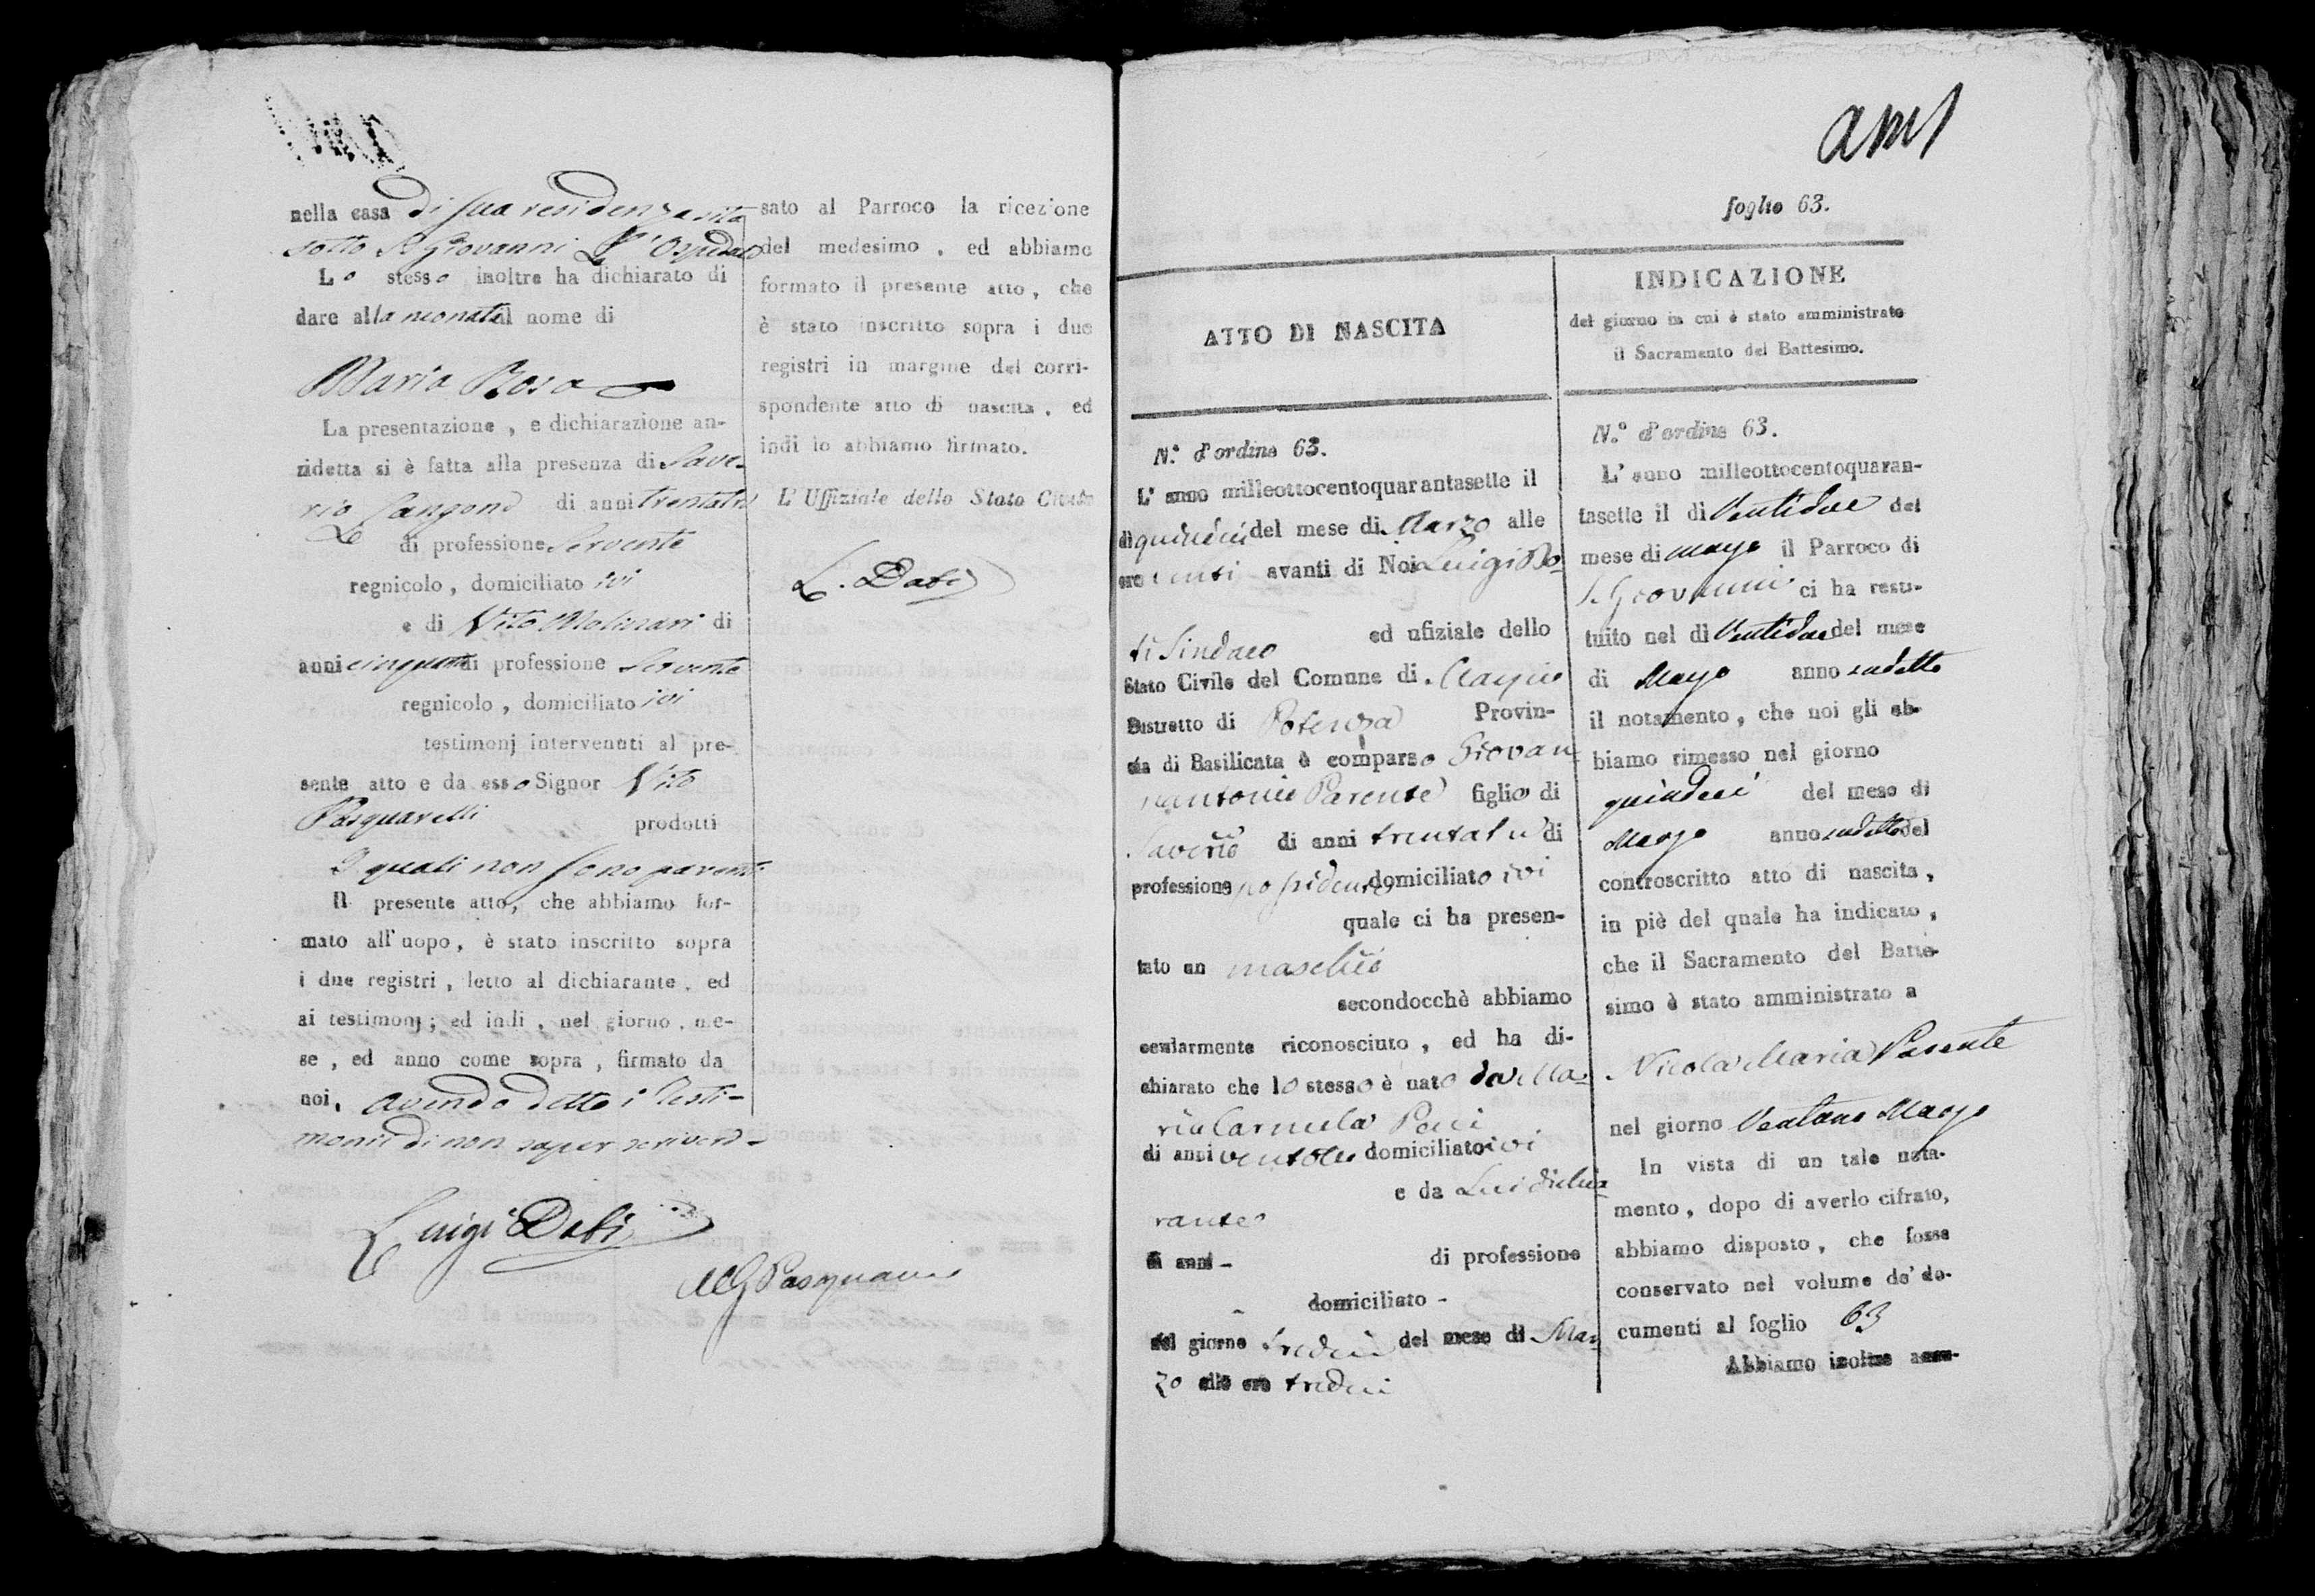 nella casa di sua residenza sita
sotto S. Giovanni L'Ospidale
Lo stesso inoltre ha dichiarato di
dare alla neonata il nome di
Maria Rosa
La presentazione, e dichiarazione an-
zidetta si è fatta alla presenza di Save-
rio Langone di anni trentatre
di professione Servente
regnicolo, domiciliato ivi
e di Vito Molinari di
anni cinquanta di professione Servente
regnicolo, domiciliato ivi
testimonj intervenuti al pre-
sente atto e da esso Signor Vito
Pasquarelli prodotti
I quali non sono parenti
Il presente atto, che abbiamo for-
mato all'uopo, è stato inscritto sopra
i due registri, letto al dichiarante, ed
ai testimonj; ed indi, nel giorno, me-
se, ed anno come sopra, firmato da
noi, avendo detto i testi-
monii di non saper scrivere
Luigi
Pasquare
sato al Parroco la ricezione
del medesimo, ed abbiamo
formato il presente atto, che
è stato inscritto sopra i due
registri in margine del corri-
spondente atto di nascita, ed
indi lo abbiamo firmato.
L'Uffiziale dello Stato Civile
L.
foglio 63.
ATTO DI NASCITA
N.° d'ordine 63.
L'anno milleottocentoquarantasette il
di quindici del mese di Marzo alle
ore venti avanti di Noi Luigi
Sindaco ed ufiziale dello
Stato Civile del Comune di
Distretto di Potenza Provin-
cia di Basilicata è comparso Giovan
nantonio Parente figlio di
Saverio di anni trentatre di
professione possidente domiciliato ivi
quale ci ha presen-
tato un maschio
secondocchè abbiamo
ocularmente riconosciuto, ed ha di-
chiarato che lo stesso è nato da Ma-
ria Carmela
di anni domiciliato ivi
e da Lui dichia-
rante
di anni - di professione
- domiciliato -
del giorno tredici del mese di Mar-
zo alle ore tredici
INDICAZIONE
del giorno in cui è stato amministrato
il Sacramento del Battesimo.
N.° d'ordine 63.
L'anno milleottocentoquaran-
tasette il di Ventidue del
mese di Marzo il Parroco di
S. Giovanni ci ha resti-
tuito nel di Ventidue del mese
di Marzo anno sudetto
il notamento, che noi gli ab-
biamo rimesso nel giorno
quindici del mese di
Marzo anno sudetto del
controscritto atto di nascita,
in piè del quale ha indicato,
che il Sacramento del Batte-
simo è stato amministrato a
Nicola Maria Parente
nel giorno Ventuno Marzo
In vista di un tale nota-
mento, dopo di averlo cifrato,
abbiamo disposto, che fosse
conservato nel volume de' do-
cumenti al foglio 63
Abbiamo inoltre accu-